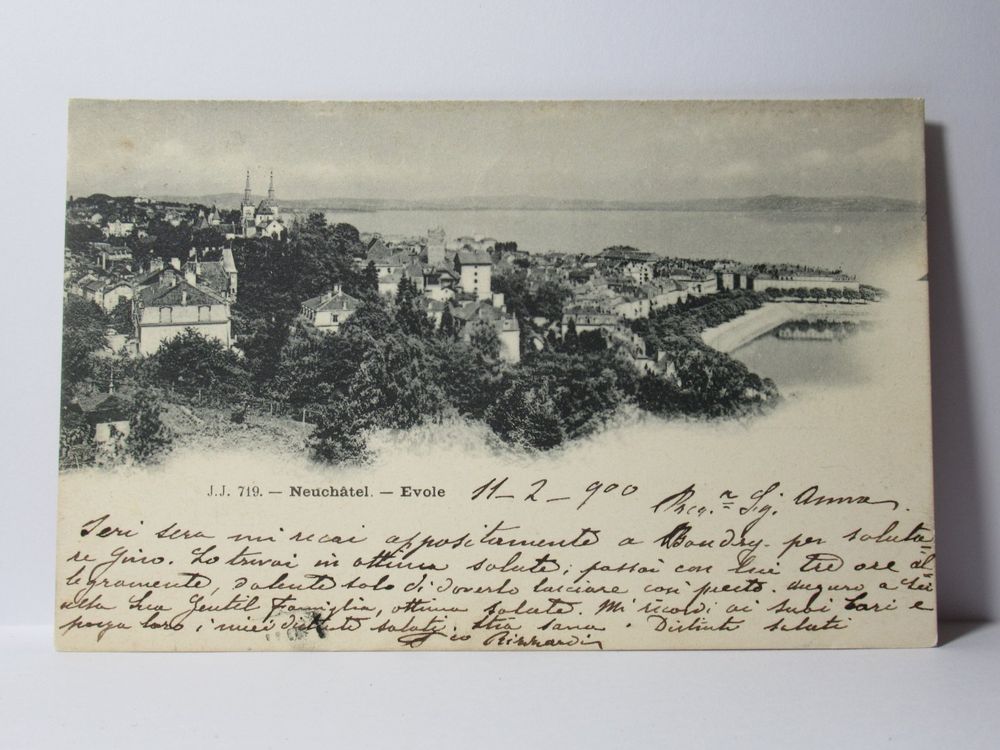 J.J. 719. — Neuchâtel. — Evole
11-2-900
Preg.ª Sig. Anna.
Ieri sera mi recai appositamente a Boudry per saluta
re Gino. Lo trovai in ottima salute; passai con lui tre ore al
legramente, dolente solo di doverlo lasciare così presto. Auguro a Lei
alla Sua Gentil Famiglia, ottima salute. Mi ricordi ai suoi Cari e
porga loro i miei distinti saluti. Stia sana. Distinti saluti